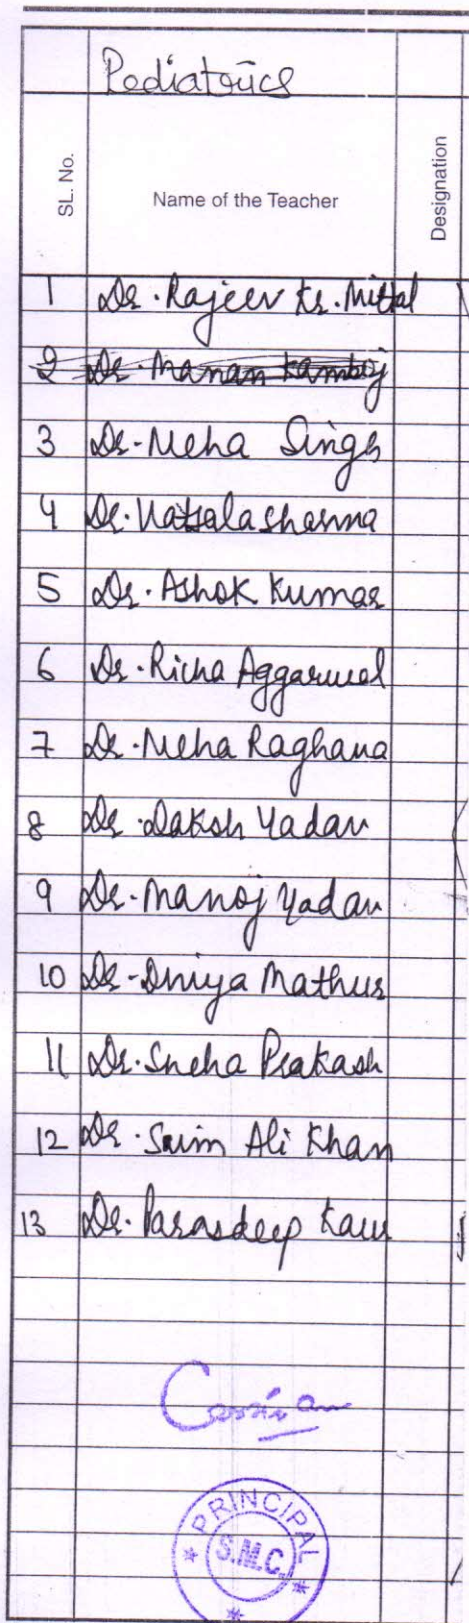 Pediatrics
SL. No.
Name of the Teacher
Designation
1 Dr. Rajeev Kr. Mittal
2 Dr. Manan Kamboj
3 Dr. Neha Singh
4 Dr. Vatsala Sharma
5 Dr. Ashok Kumar
6 Dr. Richa Aggarwal
7 Dr. Neha Raghava
8 Dr. Daksh Yadav
9 Dr. Manoj Yadav
10 Dr. Mathur
11 Dr. Sneha Prakash
12 Dr. Saim Ali Khan
13 Dr. Parasdeep Kaur
PRINCIPAL
S.M.C.